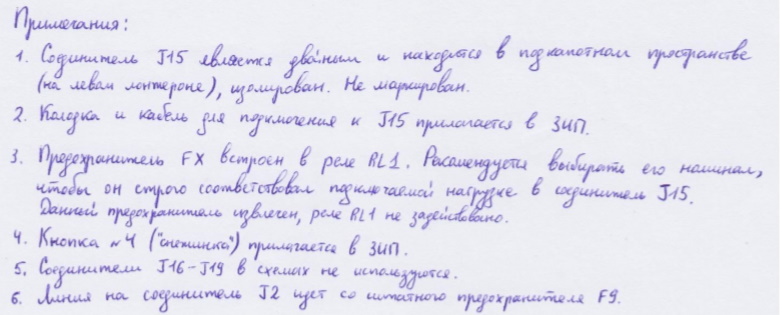 Примечания:
1. Соединитель J15 является двойным и находится в подкапотном пространстве
(на левом лонжероне), изолирован. Не маркирован.
2. Колодка и кабель для подключения к J15 прилагается в ЗИП.
3. Предохранитель FX встроен в реле RL1. Рекомендуется выбирать его номинал,
чтобы он строго соответствовал подключаемой нагрузке в соединитель J15.
Данный предохранитель извлечен, реле RL1 не задействовано.
4. Кнопка №4 ("снежинка") прилагается в ЗИП.
5. Соединители J16-J19 в схемах не используются.
6. Линия на соединитель J2 идет со штатного предохранителя F9.